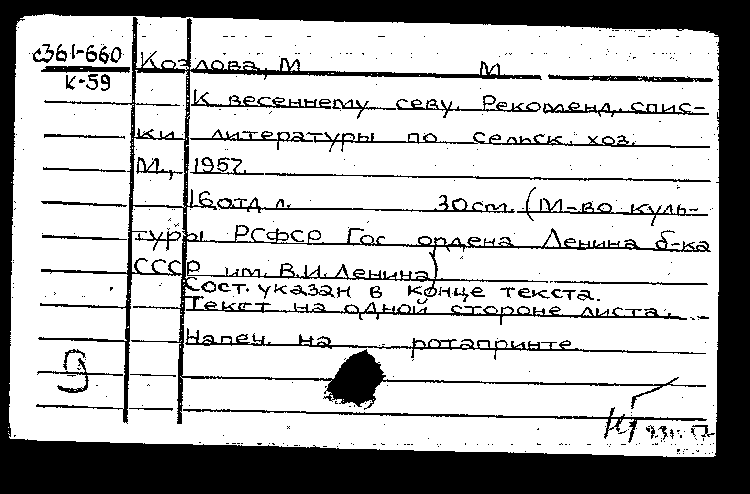 с361-660
К-59
Козлова, М М
К весеннему севу. Рекоменд. спис-
ки литературы по сельск. хоз.
М., 1957.
16 отд л. 30 cm. (М-во куль-
туры РСФСР Гос ордена Ленина б-ка
СССР им. В.И. Ленина)
Сост. указан в конце текста.
Текст на одной стороне листа.
Напеч. на ротапринте